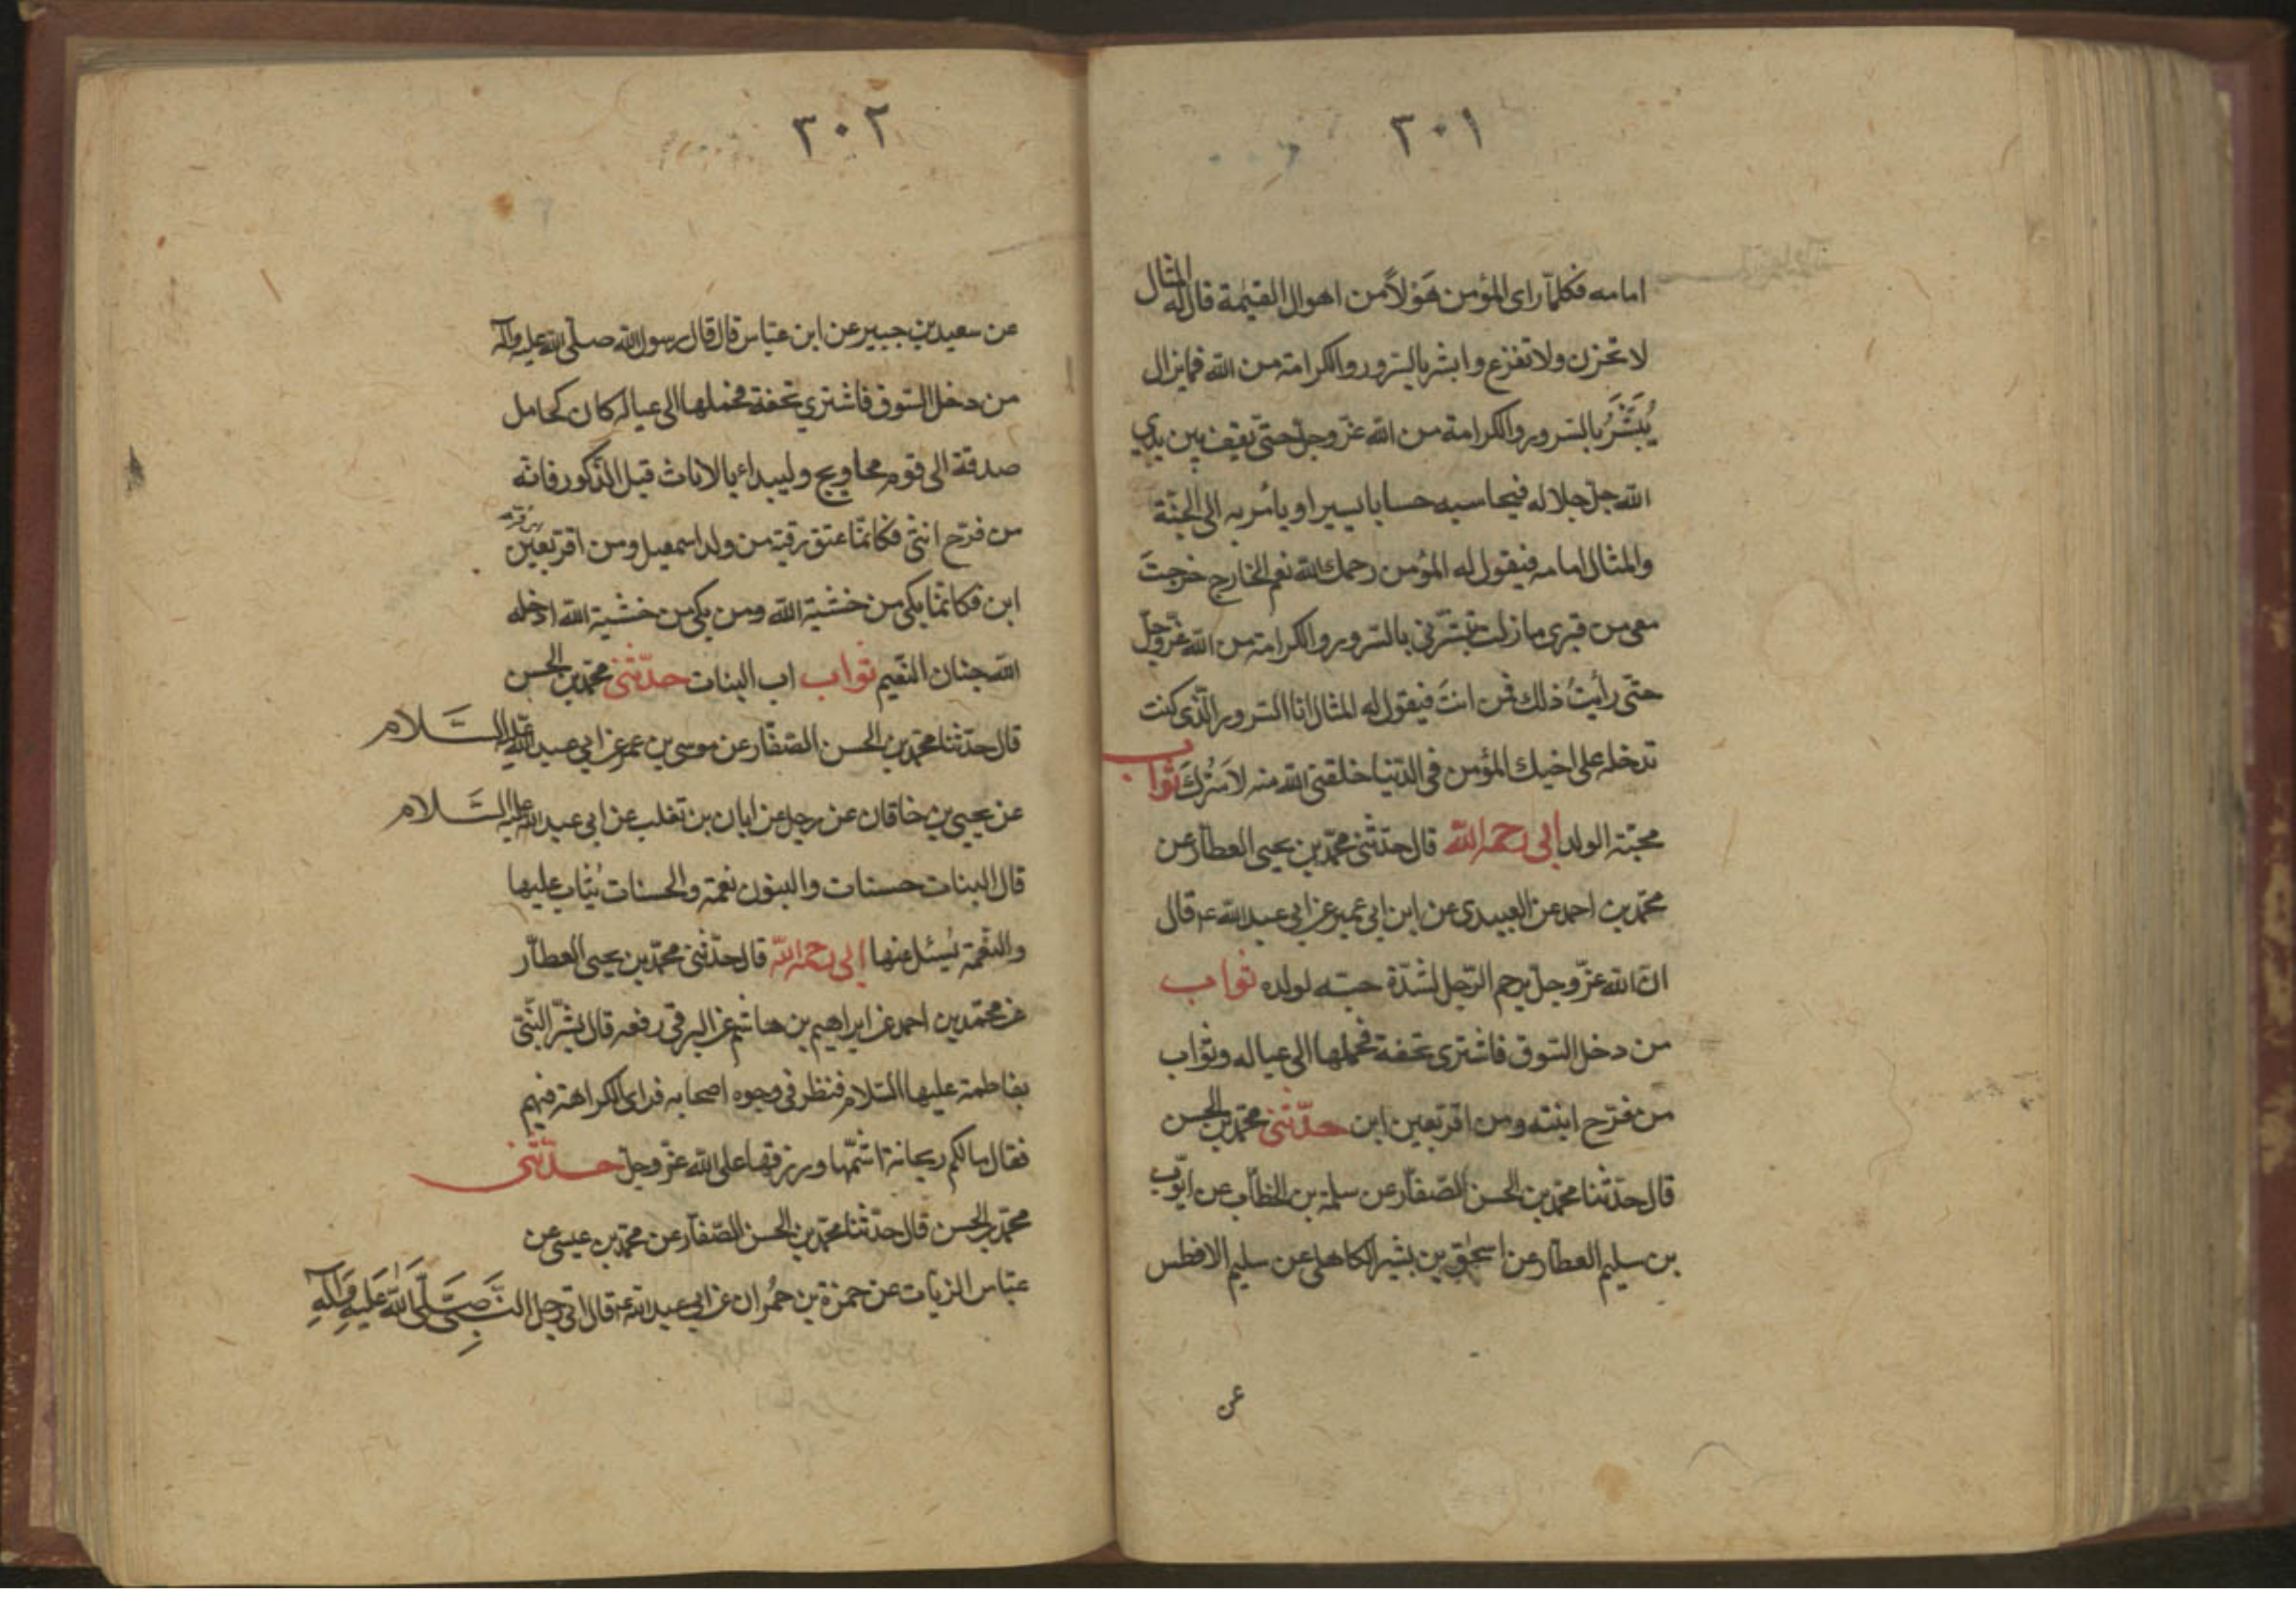 ٣٠١
امامه فكلمّا راى المؤمن هَوْلاً من اهوال القيٰمة قال له المثال
لا تحزن ولا تفزع وابشر بالسّرور والكرامة من الله فما يزال
يُبَشَّرُ بالسّرور والكرامة من الله عزّ وجلّ حتّى يقف بين يدي
الله جلّ جلاله فيحاسبه حسابا يسيرا ويأمر به الى الجنّة
والمثال امامه فيقول له المؤمن رحمك الله نعم الخارج خرجتَ
معى من قبرى ما زلت تبشّرنى بالسّرور والكرامة من الله عزّ وجلّ
حتّى رأيتُ ذلك فمن انتَ فيقول له المثال انا السّرور الّذى كنت
تدخله على اخيك المؤمن فى الدّنيا خلقنى الله منه لاَسُرَّكَ ثواب
محبّة الولد ابى رحمه الله قال حدّثنى محمّد بن يحيى العطّار عن
محمّد بن احمد عن العبيدى عن ابن ابى عمير عن ابى عبد الله ع قال
انّ الله عزّ وجلّ يرحم الرّجل لشدّة حبّه لولده ثواب
من دخل السّوق فاشترى تحفة فحملها الى عياله وثواب
من فرّح ابنته ومن اقرّ بعين ابن حدّثنى محمّد بن الحسن
قال حدّثنا محمّد بن الحسن الصّفّار عن سلمة بن الخطّاب عن ايّوب
بن سليم العطّار عن اسحٰق بن بشير الكاهلى عن سليم الافطس
عن
٣٠٢
عن سعيد بن جبير عن ابن عبّاس قال قال رسول الله صلّى الله عليه وآله
من دخل السّوق فاشترى تحفة فحملها الى عياله كان كحامل
صدقة الى قوم محاويج وليبداء بالاناث قبل الذّكور فانّه
من فرّح انثى فكانمّا عتق رقبة من ولد اسمعيل ومن اقرّ بعين
ابن فكانمّا بكى من خشية الله ومن بكى من خشية الله ادخله
الله جنان النّعيم ثواب اب البنات حدّثنى محمّد بن الحسن
قال حدّثنا محمّد بن الحسن الصّفّار عن موسى بن عمر عن ابى عبد الله عليه السّلام
عن يحيى بن خاقان عن رجل عن ابان بن تغلب عن ابى عبد الله عليه السّلام
قال البنات حسنات والبنون نعمة والحسنات يُثاب عليها
والنّعمة يُسئل عنها ابى رحمه الله قال حدّثنى محمّد بن يحيى العطّار
عن محمّد بن احمد عن ابراهيم بن هاشم عن البرقى رفعه قال بشّر النّبىّ
بفاطمة عليها السّلام فنظر فى وجوه اصحابه فراى الكراهة فيهم
فقال مالكم ريحانة اشمّها ورزقها على الله عزّ وجلّ حدّثنى
محمّد بن الحسن قال حدّثنا محمّد بن الحسن الصّفّار عن محمّد بن عيسى عن
عبّاس الزيّات عن حمزة بن حُمران عن ابى عبد الله ع قال اتى رجل النّبىّ صَلَّى اللهُ عَلَيْهِ وَآلِهِ